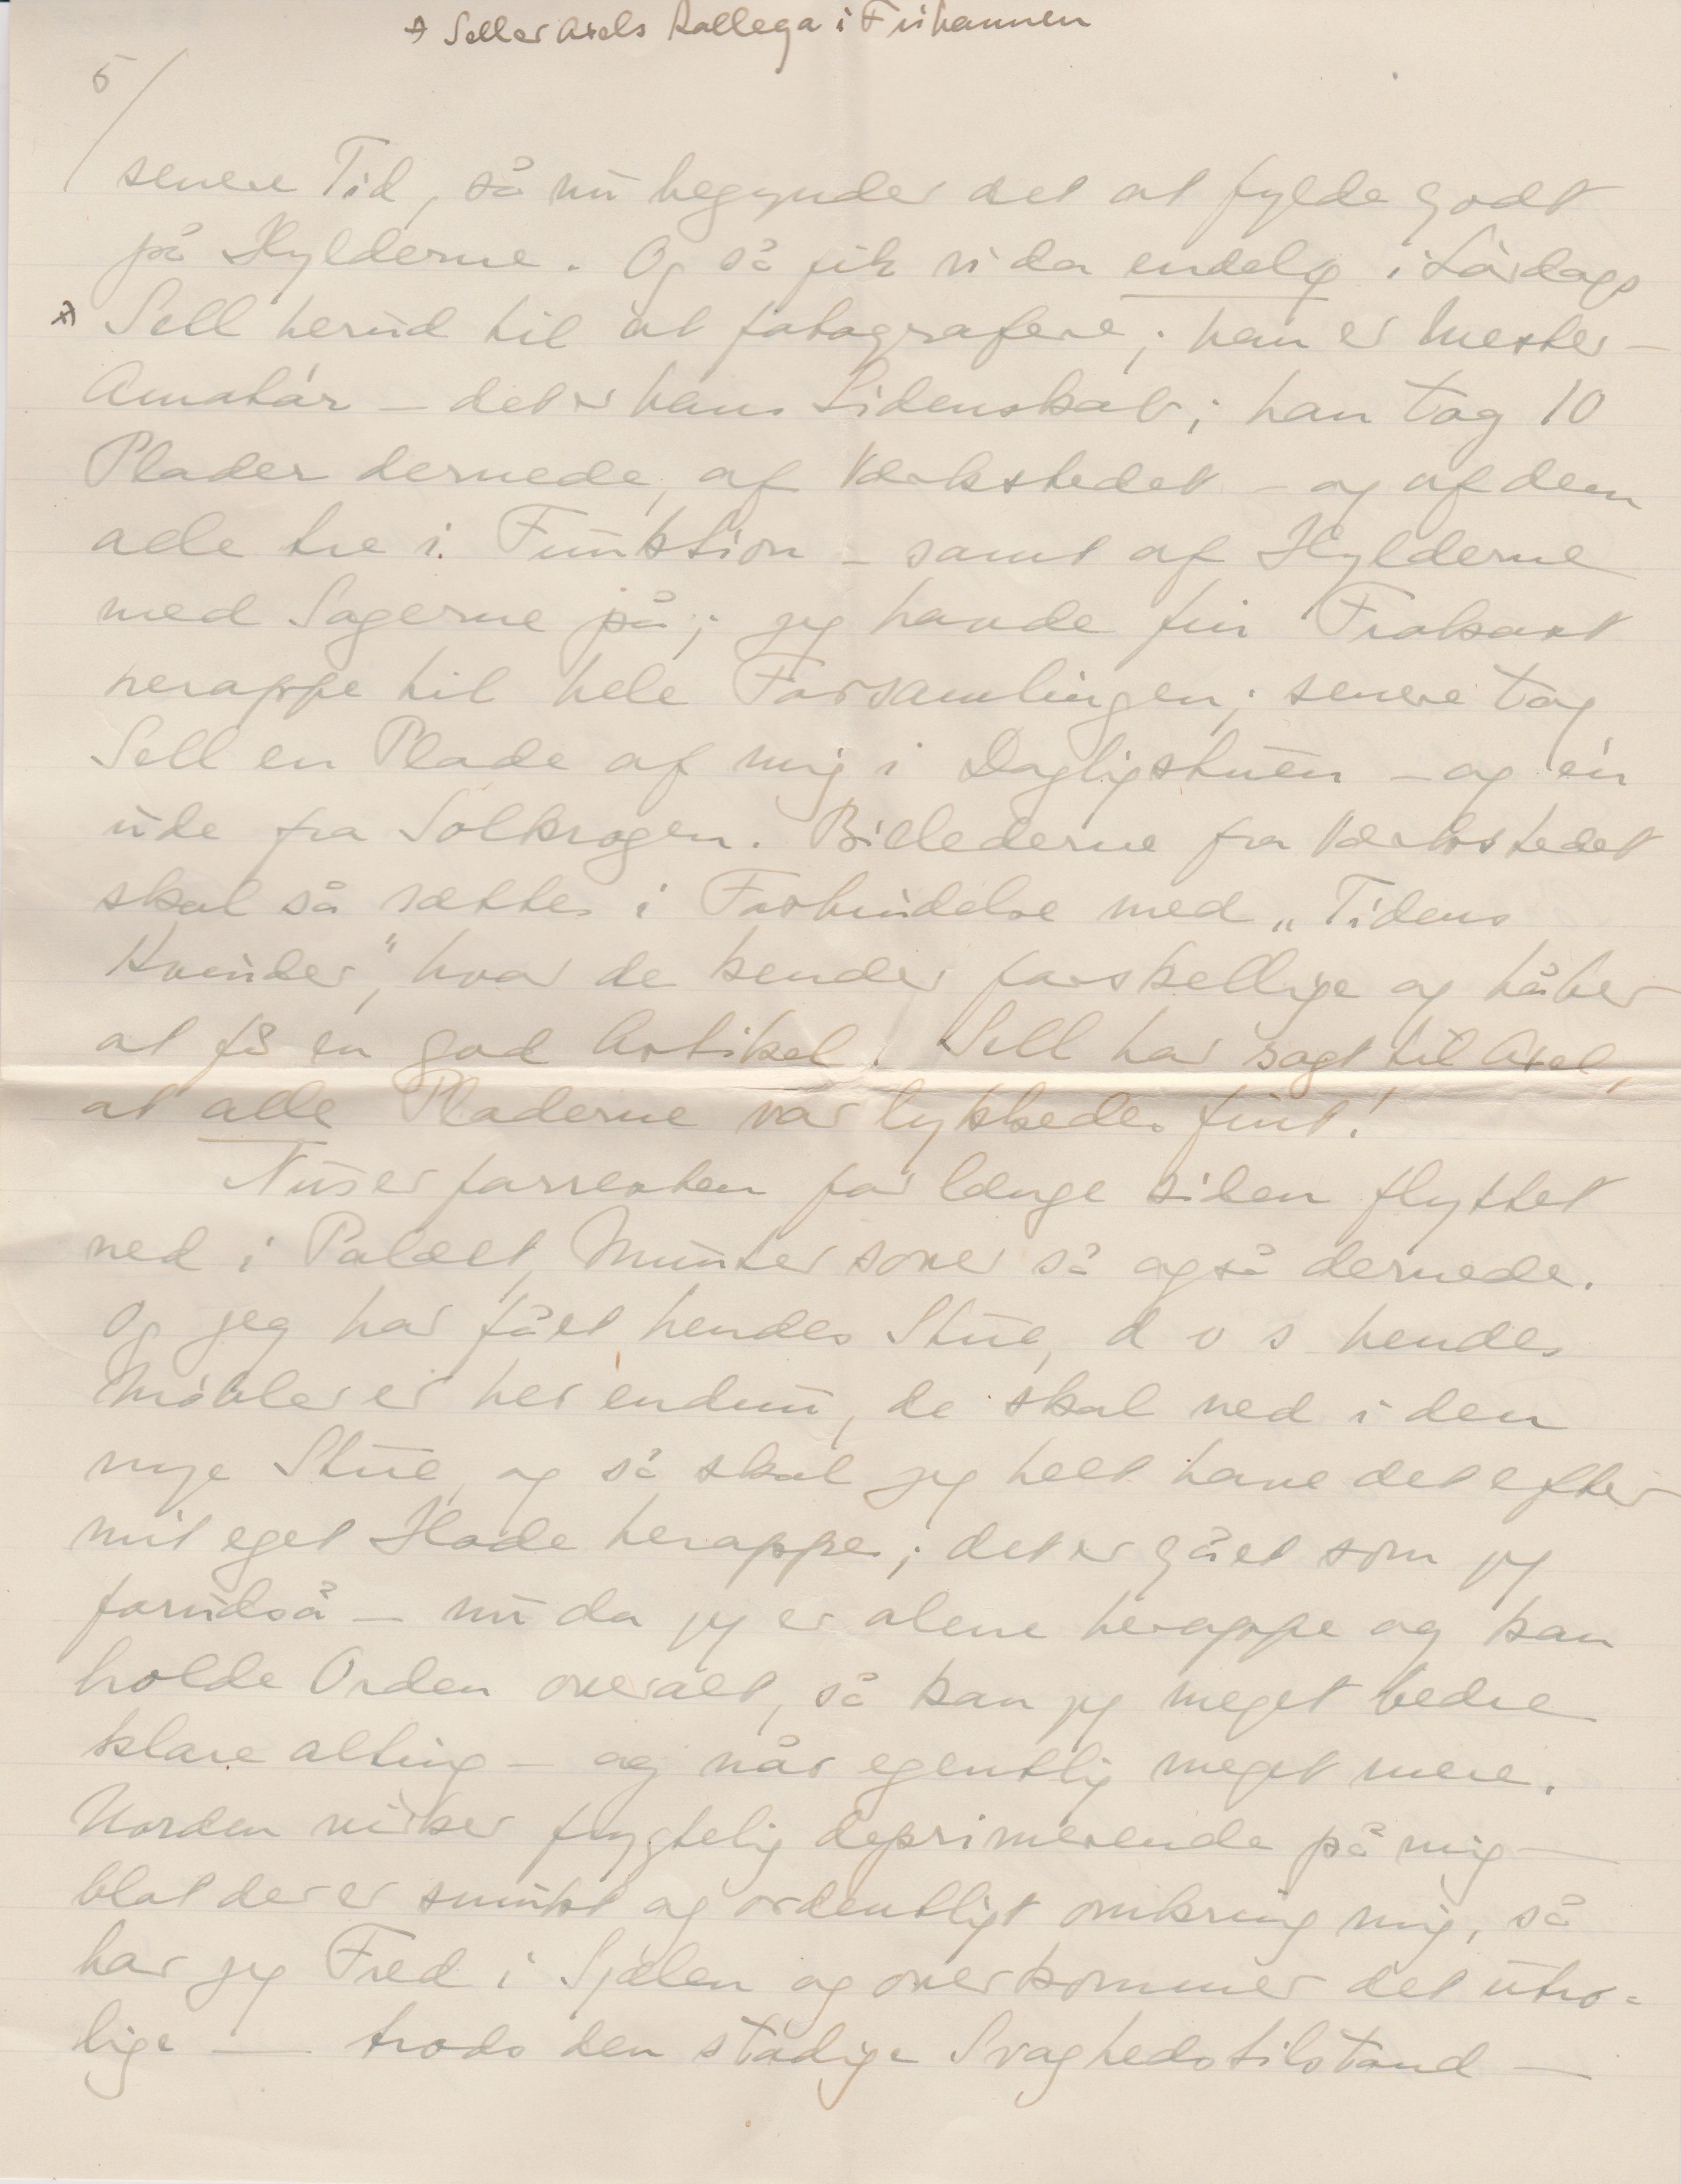 * Sell er Axels Kollega i Frihavnen
5/
senere Tid, så nu begynder det at fylde godt
på Hylderne. Og så fik vi da endelig i Lørdags
* Sell herud til at fotografere; han er Mester-
Amatør – det er hans Lidenskab; han tog 10
Plader dernede, af Værkstedet – og af dem
alle tre i Funktion – samt af Hylderne
med Sagerne på; jeg havde fin Frokost
heroppe til hele Forsamlingen; senere tog
Sell en Plade af mig i Dagligstuen – og én
ude fra Solkrogen. Billederne fra Værkstedet
skal så sættes i Forbindelse med „Tidens
Kvinder", hvor de kender forskellige og håber
at få en god Artikel. Sell har sagt til Axel,
at alle Pladerne var lykkedes fint!
Nus er forresten for længe siden flyttet
ned i Palæet, Munter sover så også dernede.
Og jeg har fået hendes Stue, d v s hendes
Møbler er her endnu, de skal ned i den
nye Stue, og så skal jeg helt have det efter
mit eget Hode heroppe; det er gået som jeg
forudså – nu da jeg er alene heroppe og kan
holde Orden overalt, så kan jeg meget bedre
klare alting – og når egentlig meget mere.
Uorden virker frygtelig deprimerende på mig –
blot der er smukt og ordentligt omkring mig, så
har jeg Fred i Sjælen og overkommer det utro=
lige – trods den stadige Svaghedstilstand –